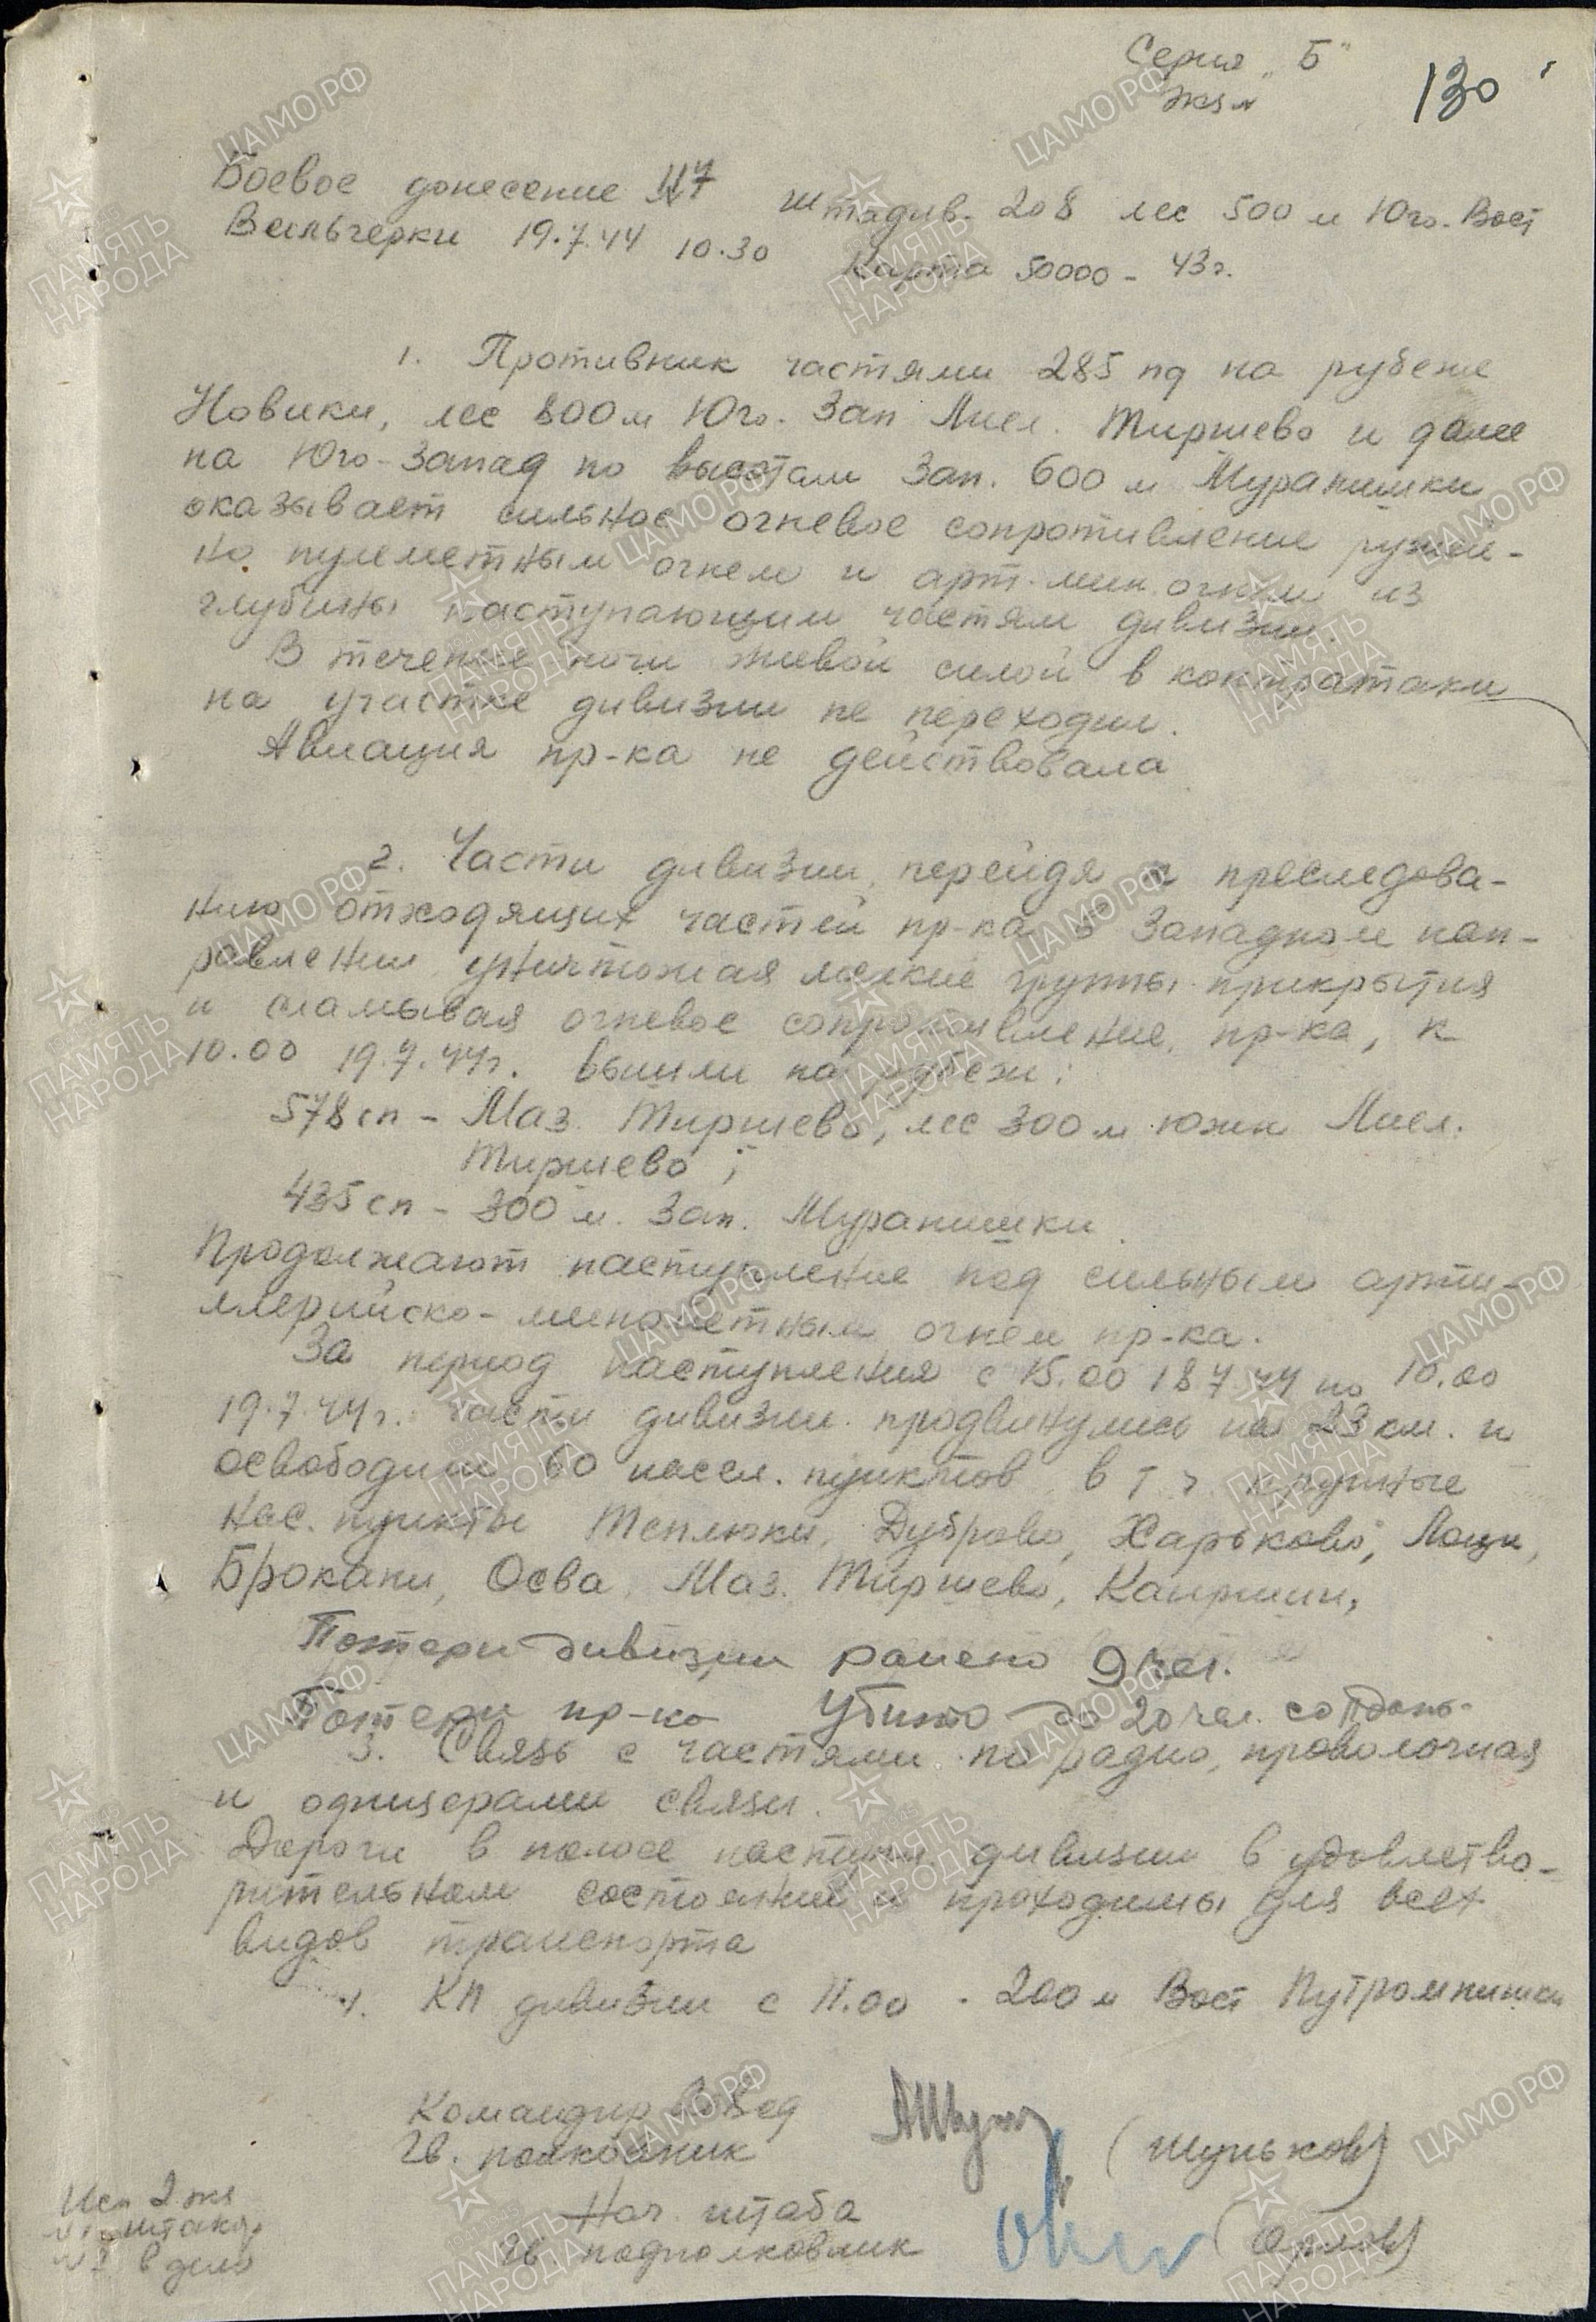 Серия "Б"
Экз №
130
Боевое донесение №7 штадив. 208 лес 500 м Юго-Вост
19.7.44 10.30 Карта 50000 - 43г.
1. Противник частями 285 пд на рубеже
Новики, лес 800 м Юго-Зап Мисл. Тиршево и далее
на Юго-Запад по высотам Зап. 600 м Муранишки
оказывает сильное огневое сопротивление ружей-
но пулеметным огнем и арт-мин. огнем из
глубины наступающим частям дивизии.
В течение ночи живой силой в контратаки
на участке дивизии не переходил.
Авиация пр-ка не действовала
2. Части дивизии, перейдя к преследова-
нию отходящих частей пр-ка в Западном нап-
равлении уничтожая мелкие группы прикрытия
и сламывая огневое сопротивление пр-ка, к
10.00 19.7.44г. вышли на рубежи:
578 сп - Маз. Тиршево, лес 300 м южн Мисл.
Тиршево;
435 сп - 300 м. Зап. Муранишки
Продолжают наступление под сильным арти-
ллерийско-минометным огнем пр-ка.
За период наступления с 15.00 18 7 44 по 10.00
19.7.44г. части дивизии продвинулись на 23 км. и
освободили 60 насел. пунктов в т. ч. крупные
нас. пункты Теплюки, Дуброво, Харьково, Лоци,
Брокани, Осва, Маз. Тиршево,
Потери дивизии ранено 9 чел.
Потери пр-ка убито до 20 чел. солдат.
3. Связь с частями по радио, проволочная
и офицерами связи.
Дороги в полосе наступл дивизии в удовлетво-
рительном состоянии и проходимы для всех
видов транспорта
4. КП дивизии с 11.00 - 200 м Вост
Командир 208 сд
Гв. полковник (Шуньков)
Нач. штаба
Гв. подполковник (Орлов)
Исп 2 экз
№1 штакор
№2 в дело
ЦАМО.РФ
ПАМЯТЬ
НАРОДА